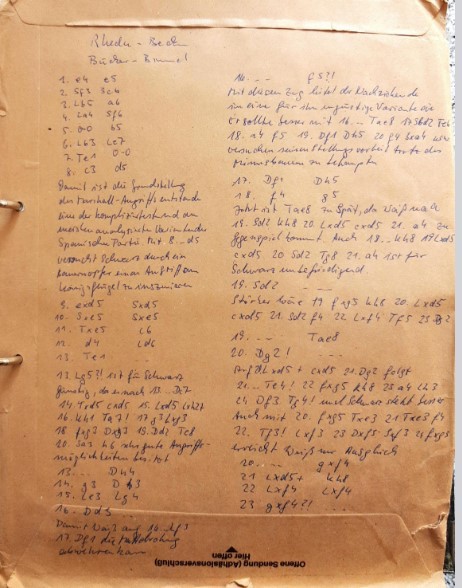 Rheda - Beckum
1. e4 e5
2. Sf3 Sc6
3. Lb5 a6
4. La4 Sf6
5. 0-0 b5
6. Lb3 Le7
7. Te1 0-0
8. c3 d5
Damit ist die Grundstellung
des Marshall-Angriffs entstanden
eine der kompliziertesten und am
meisten analysierten Varianten der
Spanischen Partie. Mit 8...d5
versucht Schwarz durch ein
Bauernopfer einen Angriff am
Königsflügel zu inszenieren
9. exd5 Sxd5
10. Sxe5 Sxe5
11. Txe5 c6
12. d4 Ld6
13. Te1 ...
13. Lg5?! ist für Schwarz
günstig, da er nach 13... Dc7
14. Txd5 cxd5 15. Lxd5 Lxh2+
16. Kh1 Ta7! 17. g3 Lxg3
18. fxg3 Dxg3 15. Dd2 Te8
20. h6 sehr gute Angriffs-
möglichkeiten besitzt
13. ... Dh4
14. g3 Dh3
15. Le3 Lg4
16. Dd3 ...
Damit Weiß auf 16. Lf3
17. Df1 die Mattdrohung
abwehren kann
16. ... f5?!
Mit diesem Zug leitet der Nachziehende
in eine für ihn ungünstige Variante ein
Er sollte besser mit 16... Tae8 17. Sd2 Te6
18. a4 f5 19. Df1 Dh5 20. f4 bxa4 usw
versuchen seinen Stellungsvorteil trotz des
Minusbauern zu behaupten
17. Df1 Dh5
18. f4 g5
Jetzt ist Tae8 zu spät, da Weiß nach
19. Sd2 Kh8 20. Lxd5 cxd5 21. a4 zu
Gegenspiel kommt. Auch 18... Kh8 19. Lxd5
cxd5 20. Sd2 Tg8 21. a4 ist für
Schwarz unbefriedigend.
19. Sd2 ...
Stärker wäre 19. fxg5 Kh8 20. Lxd5
cxd5 21. Sd2 f4 22. Lxf4 Tf5 23. Dg2
19. ... Tae8
20. Dg2! ...
Auf 20. Lxd5+ cxd5 21. Dg2 folgt
21... Te4! 22. fxg5 Kh8 23. a4 Lh3
24. Df3 Tg4! und Schwarz steht besser
Auch mit 20. fxg5 Txe3 21. Txe3 f4
22. Tf3! Lxf3 23. Dxf3 Sxf3
erreicht Weiß nur Ausgleich
20. ... gxf4
21. Lxd5+ Kh8
22. Lxf4 Lxf4
23. gxf4?! ...
Offene Sendung (Adhäsionsverschluß)
Hier öffnen